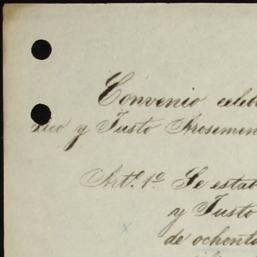 Convenio celeb
lico y Justo Arosemen
Art.º 1.º Se estab
y Justo
de ochenta